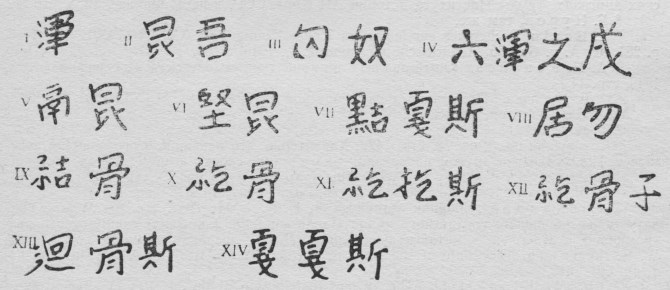 I 渾 II 昆吾 III 匈奴 IV 六渾之戎
V 鬲昆 VI 堅昆 VII 黠戛斯 VIII 居勿
IX 結骨 X 紇骨 XI 紇扢斯 XII 紇骨子
XIII 迴骨斯 XIV 戛戛斯